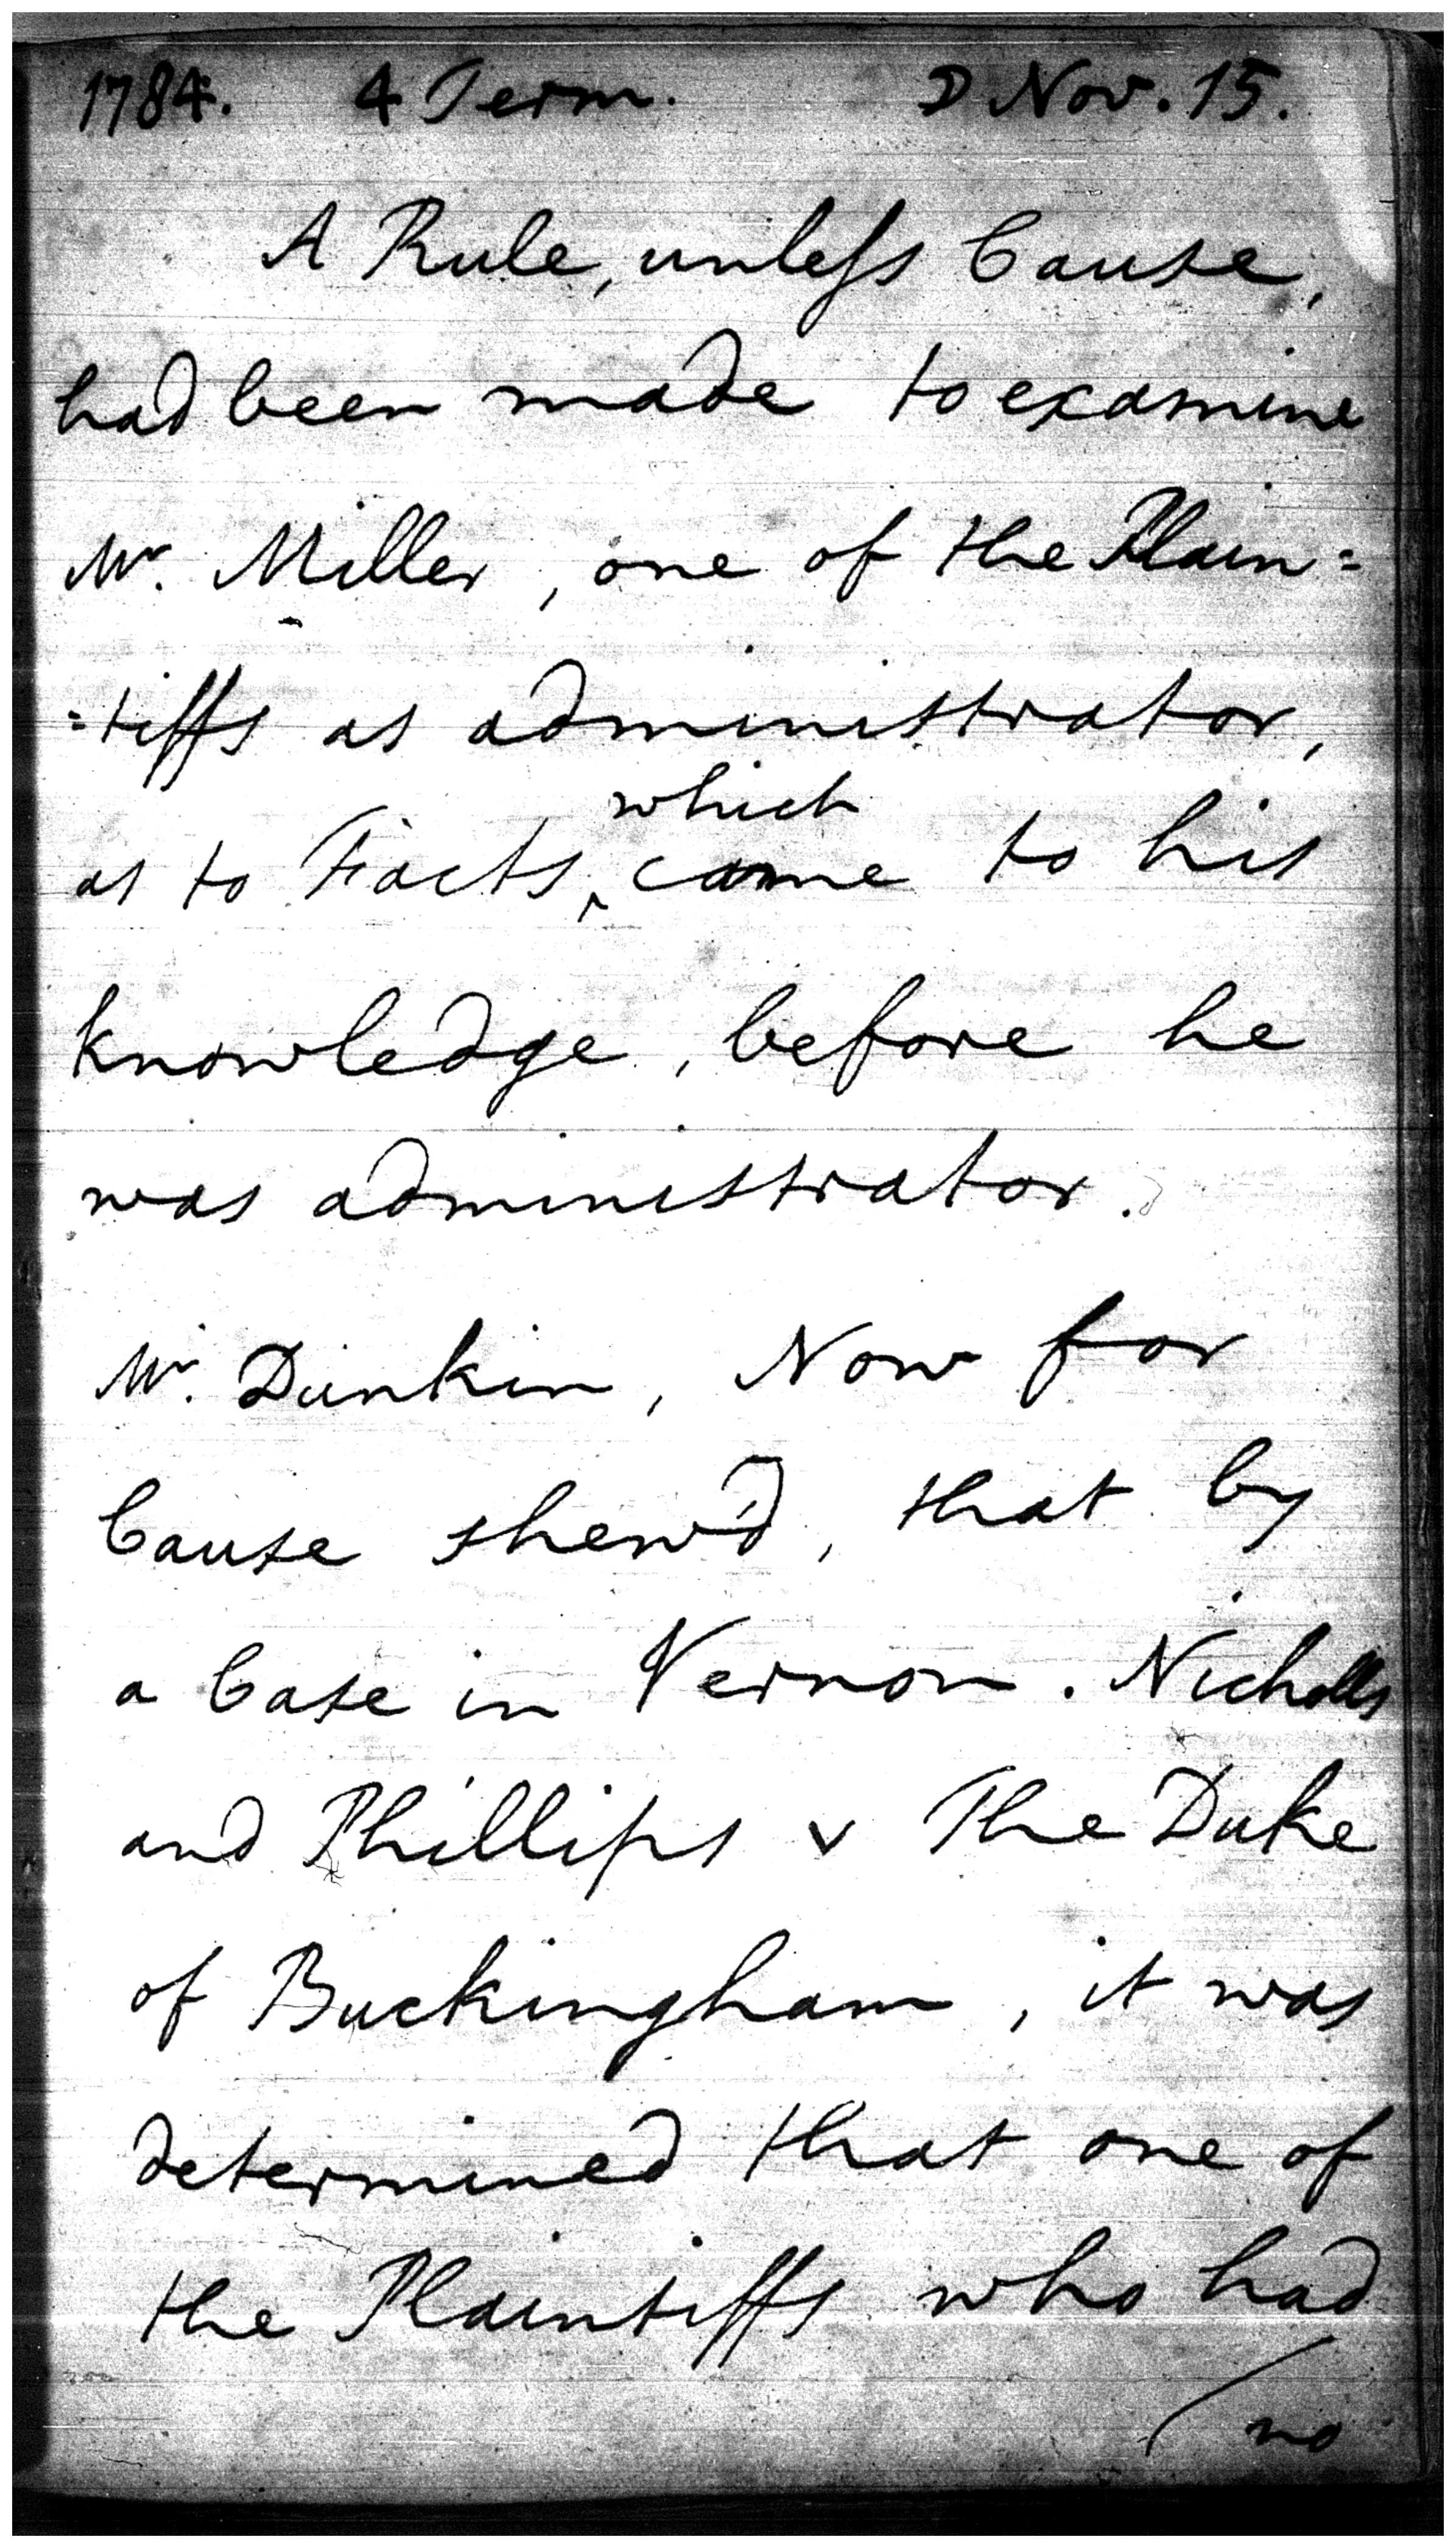 1784. 4 Term. D Nov. 15.
A Rule, unless Cause,
had been made to examine
Mr. Miller, one of the Plain=
=tiffs as administrator,
which
as to Facts, ^ came to his
knowledge, before he
was administrator.
Mr. Dunkin, Now for
Cause shew'd, that by
a Case in Vernon. Nicholls
and Phillips v The Duke
of Buckingham, it was
determined that one of
the Plaintiffs who had
/ no